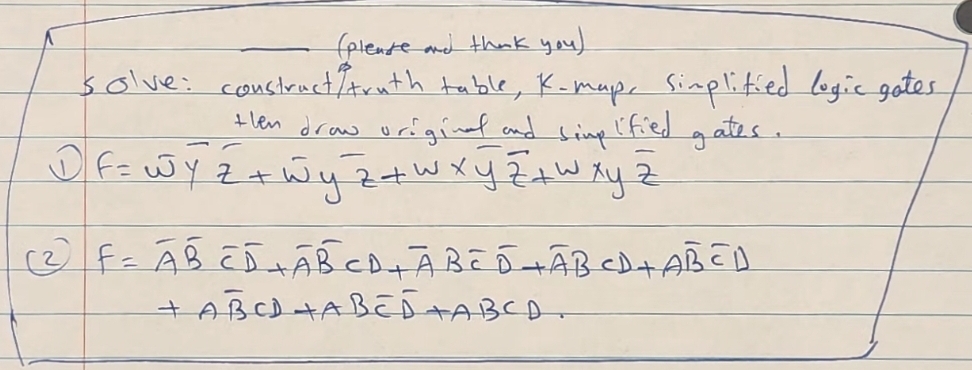 (please and thank you)
Solve: construct truth table, K-map, simplified logic gates
then draw original and simplified gates.
① F = w̅ y̅ z̅ + w̅ y z̅ + w x y̅ z̅ + w x y z̅
(2) F = A̅ B̅ C̅ D̅ + A̅ B̅ C D + A̅ B C̅ D̅ + A̅ B C D + A B̅ C̅ D
+ A B̅ C D + A B C̅ D̅ + A B C D.